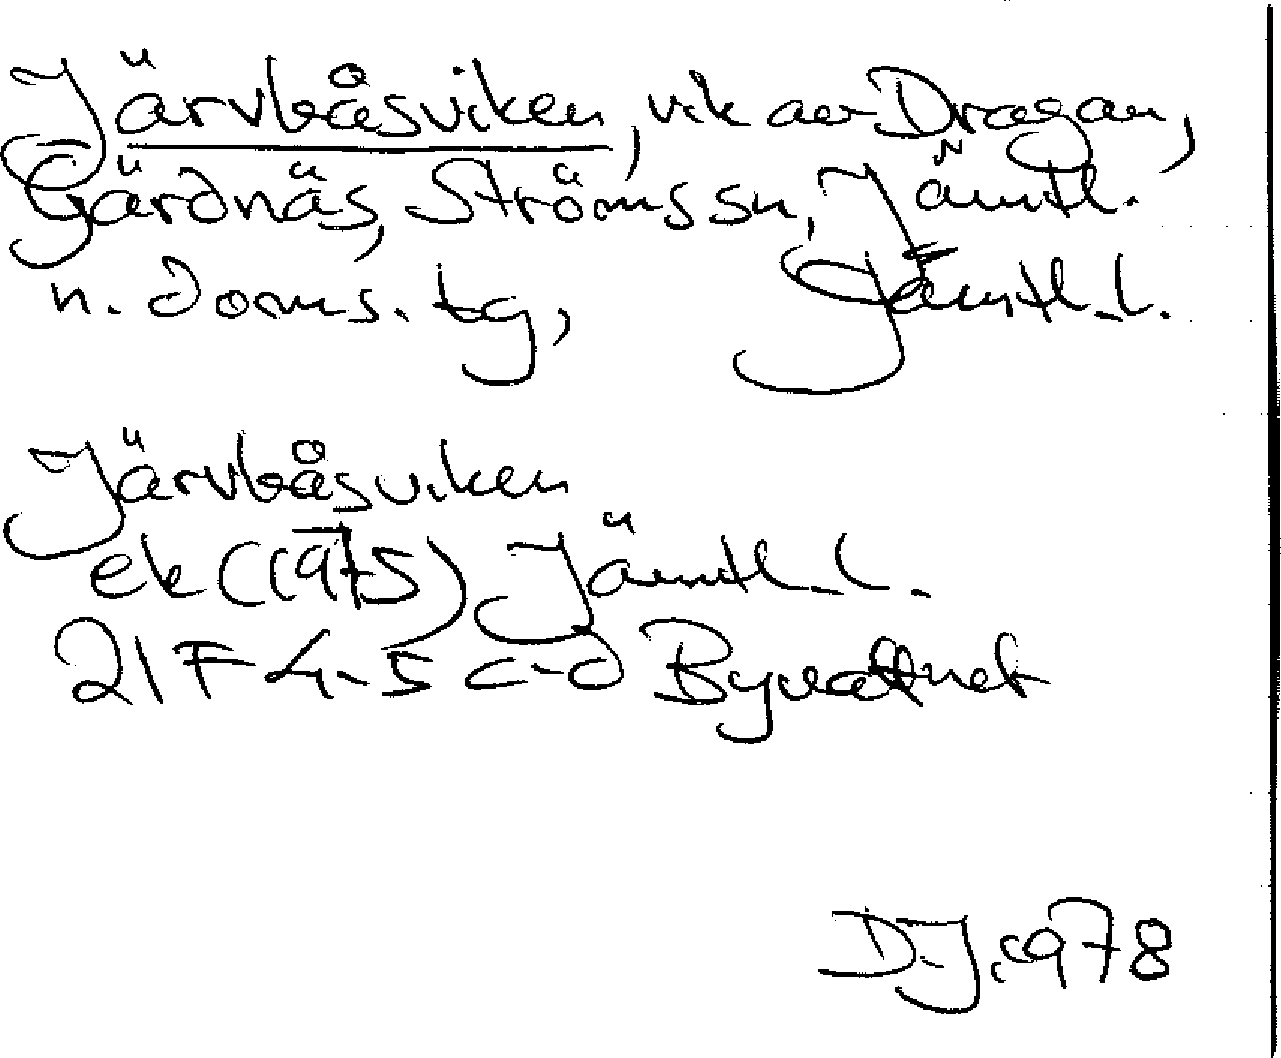 Järvbåsviken, vik av Dragan,
Gärdnäs, Ströms sn, Jämtl.
n. doms. tg, Jämtl. l.
Järvbåsviken
ek (1975) Jämtl. l.
21 F 4-5 c-d Byvattnet
D.J. 1978